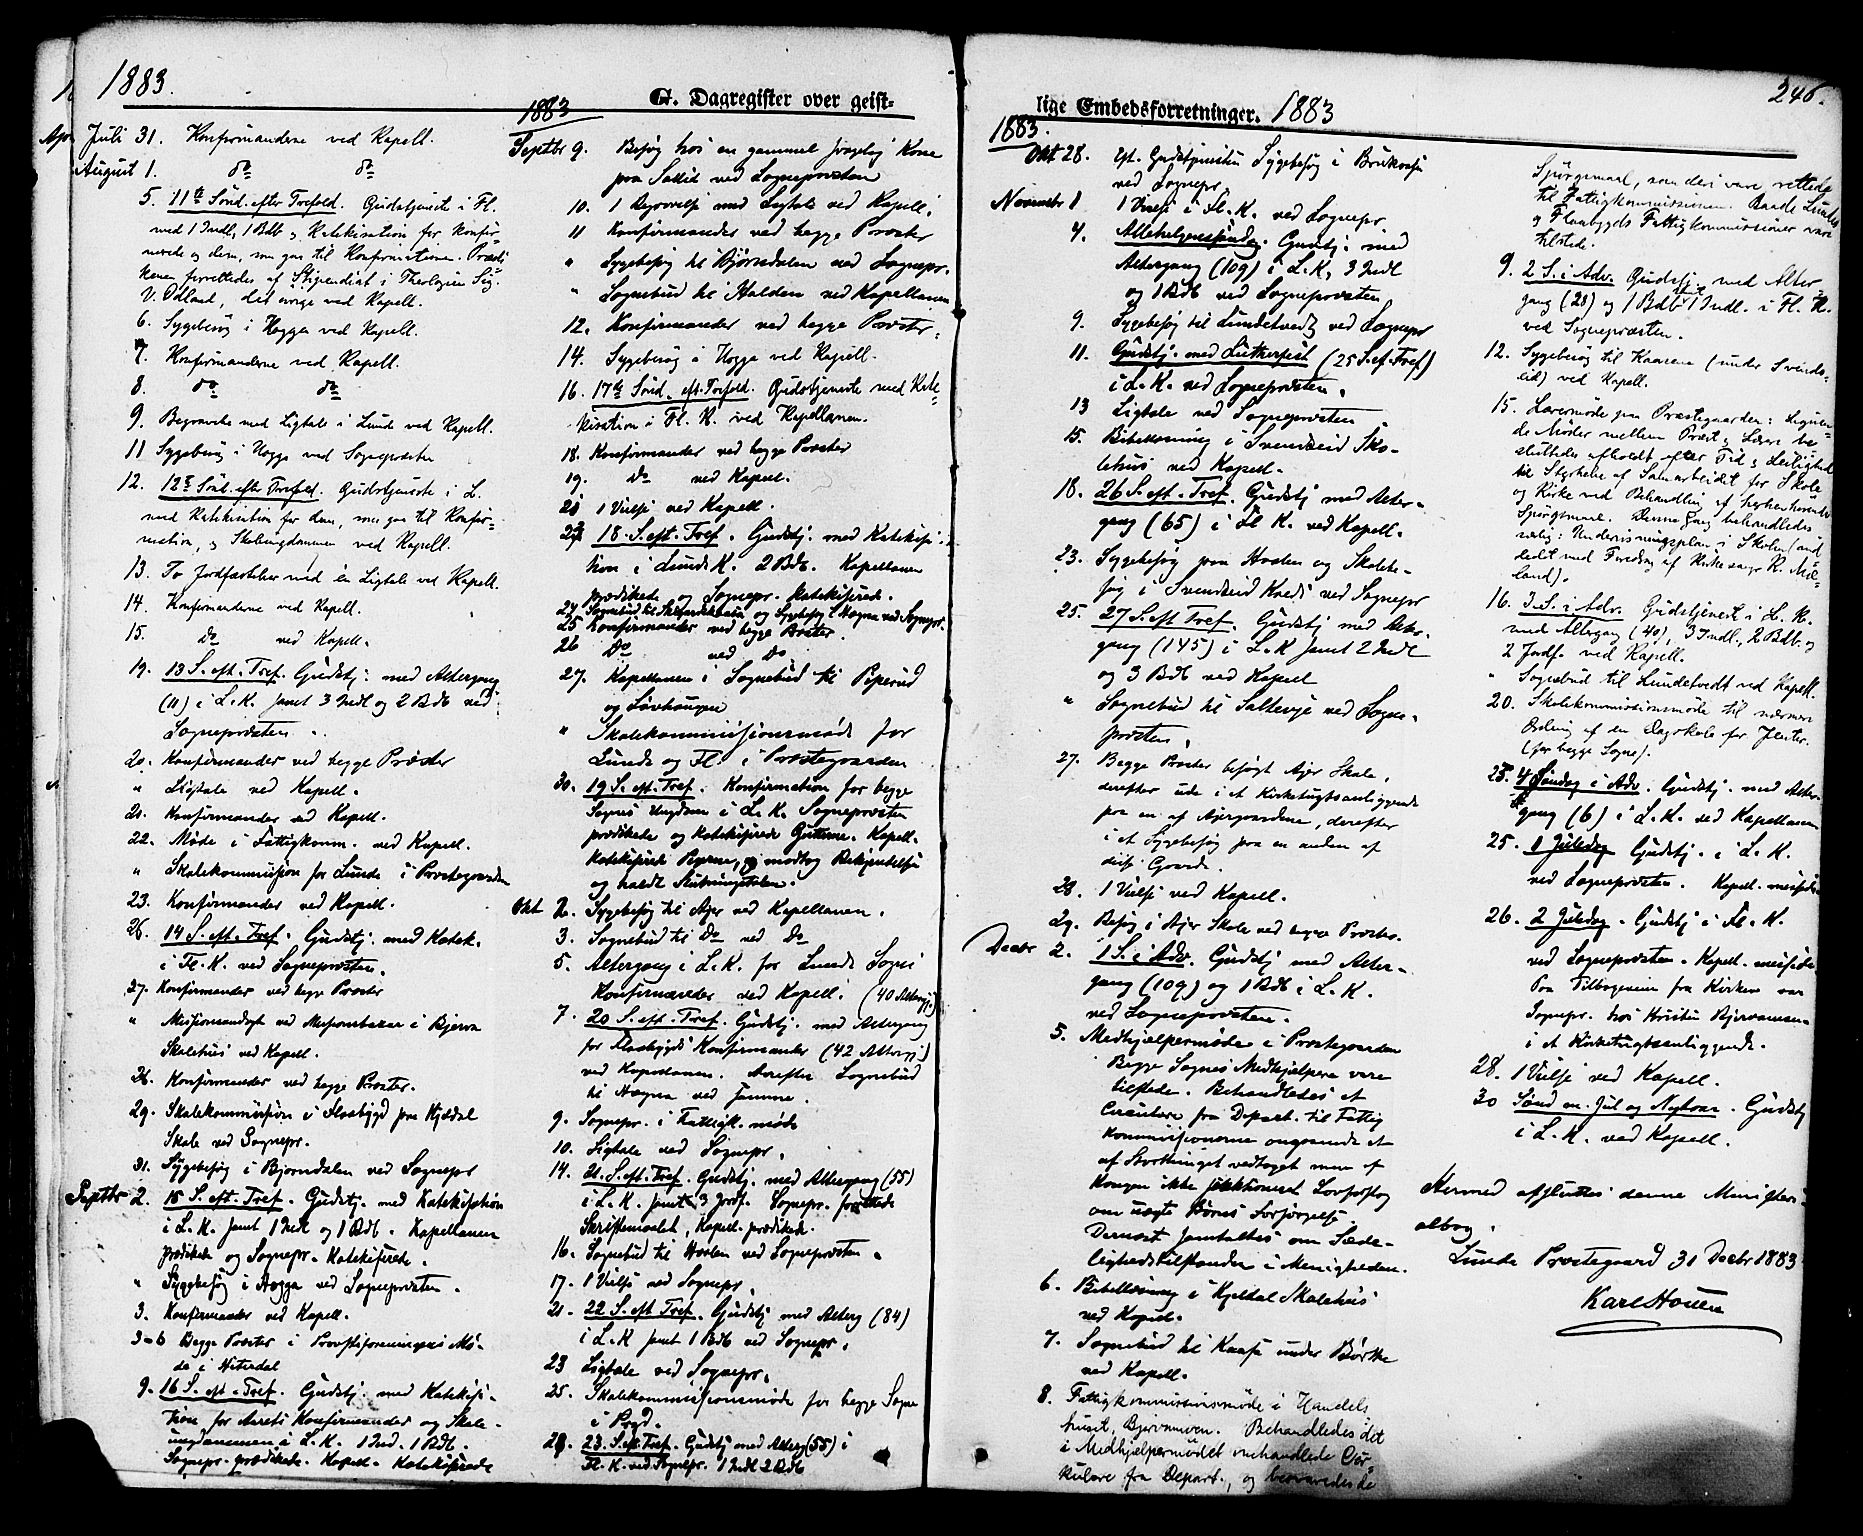 1883.
G. Dagregister over geist-
1883
Juli 31. Konfirmanderne ved Kapell.
August 1. do do
5. 11te Sønd. efter Trefold. Gudstjeneste i Fl.
ved 1 Indl, 1 Bdb og Katekisation for Konfir-
merede og dem, som gaa til Konfirmation. Prædi-
kenen forrettedes af Stipendiat i Theologien Sig.
V. Odland, det øvrige ved Kapell.
6. Sygebesøg i Hogga ved Kapell.
7. Konfirmanderne ved Kapell.
8. do do
9. Begravelse med Ligtale i Lunde ved Kapell.
11 Sygebesøg i Hogga ved Sognepræsten
12. 12te Sønd. efter Trefold. Gudstjeneste i L.
med Katekisation for dem, som gaa til Konfir-
mation, og Skoleungdommen ved Kapell.
13. To Jordfæstelser med én Ligtale ved Kapell.
14. Konfirmanderne ved Kapell.
15. Do ved Kapell.
19. 13 S. eft. Tref. Gudstj. med Altergang
(11) i L. K. samt 3 Indl og 2 Bdb ved
Sognepræsten.
20. Konfirmander ved begge Præster
" Ligtale ved Kapell.
21. Konfirmander ved Kapell.
22. Møde i Fattigkomm. ved Kapell.
" Skolekommission for Lunde i Præstegaarden
23. Konfirmander ved Kapell.
26. 14 S. eft. Tref. Gudstj. med Katek.
i Fl. K. ved Sognepræsten.
27. Konfirmander ved begge Præster
" Missionsandagt ved Missionsbazar i Bjerva
Skolehus ved Kapell.
28. Konfirmander ved begge Præster.
29. Skolekommission i Flaabygd paa Kjeldal
Skole ved Sognepr.
31. Sygebesøg i Bjørndalen ved Sognepr
Septbr 2. 15 S. eft. Tref. Gudstj. med Katekisation
i L. K. samt 1 Indl og 1 Bdb. Kapellanen
prædikede og Sognepr. katekiserede.
" Sygebesøg i Hogga ved Sognepræsten.
3. Konfirmander ved Kapell.
3-6 Begge Præster i Provstiforeningens Mø-
de i Hiterdal
9. 16 S. eft. Tref. Gudstj. med Katekisa-
tion for Aarets Konfirmander og Skole-
ungdommen i L. K. 1 Ind. 1 Bdb.
Sognepr. prædikede. Kapell. katekiserede
Septbr 9. Besøg hos en gammel svagelig Kone
paa Sattit ved Sognepræsten
10. 1 Begravelse med Ligtale ved Kapell.
11 Konfirmander ved begge Præster
" Sygebesøg til Bjørndalen ved Sognepr.
" Sognebud til Halden ved Kapellanen
12. Konfirmander ved begge Præster.
14. Sygebesøg i Hogga ved Kapell.
16. 17te Sønd. eft. Trefold. Gudstjeneste med Kate-
kisation i Fl. K. ved Kapellanen.
18. Konfirmander ved begge Præster
19. Do ved Kapell.
21 1 Vielse ved Kapell.
23. 18. S. eft. Tref. Gudstj. med Katekisa-
tion i Lunde K. 2 Bdb. Kapellanen
prædikede og Sognepr. katekiserede.
24. Sognebud til og Sygebesøg i Hogna ved Sognepr.
25 Konfirmander ved begge Præster
26 Do ved Do
27. Kapellanen i Sognebud til Piperud
og Løvhaugen
" Skolekommissionsmøde for
Lunde og Fl. i Præstegaarden
30. 19 S. eft. Tref. Konfirmation for begge
Sognes Ungdom i L. K. Sognepræsten
prædikede og katekiserede Guttene. Kapell.
katekiserede Pigerne, og modtog Bekjendelsen
og holdt Slutningstalen.
Okt 2. Sygebesøg til Ajer ved Kapellanen.
3. Sognebud til Do ved Do
5. Altergang i L. K. for Lunde Sogns
Konfirmander ved Kapell. (40 Altergj.)
7. 20 S. eft. Tref. Gudstj. med Altergang
for Flaabygds Konfirmander (42 Altergj.)
ved Kapellanen. Derefter Sognebud
til Hogna ved Samme.
9. Sognepr. i Fattigk. møde
10. Ligtale ved Sognepr.
14. 21. S. eft. Tref. Gudstj. med Altergang (55)
i L. K. samt 3 Jordf. Sognepr. forrettede
Skriftemaalet, Kapell. prædikede.
16. Sognebud til Hvolen ved Sognepræsten.
17. 1 Vielse ved Sognepr.
21. 22 S. eft Tref. Gudstj med Alterg (84)
i L. K samt 1 Bdb ved Sognepr.
23 Ligtale ved Sognepr.
25. Skolekommissionsmøde for begge Sogne
i Prgd.
28. 23. S. eft Tref. Gudstj med Alterg (55) i
Fl. K. ved Sognepr. 1 Indl 2 Bdb
lige Embedsforretninger. 1883
246.
1883.
Okt 28. Eft. Gudstjenesten Sygebesøg i
ved Sognepr.
Novembr 1 1 Vielse i Fl. K. ved Sognepr.
4. Allehelgensøndag. Gudstj. med
Altergang (109) i L. K, 3 Indl
og 1 Bdb ved Sognepræsten
9. Sygebesøg til Lundetvedt ved Sognepr
11. Gudstj. med Lutherfest (25 S. ef. Tref)
i L. K. ved Sognepræsten.
13 Ligtale ved Sognepræsten.
15. Bibellæsning i Svendseid Sko-
lehus ved Kapell.
18. 26 S. eft. Tref. Gudstj med Alter-
gang (65) i Fl K. ved Kapell.
23. Sygebesøg paa Hvolen og Skolebe-
søg i Svendseid Kreds ved Sognepr
25. 27 S. eft Tref. Gudstj med Alter-
gang (145) i L. K samt 2 Indl
og 3 Bdb ved Kapell
" Sognebud til Saltevje ved Sogne-
præsten.
27. Begge Præster besøgt Ajer Skole,
derefter ude i et Kirketugtsanliggende
paa en af Ajergaardene, derefter
i et Sygebesøg paa en anden af
disse Gaarde.
28. 1 Vielse ved Kapell.
29. Besøg i Ajer Skole ved begge Præster.
Decbr 2. 1 S. i Adv. Gudstj med Alter-
gang (109) og 1 Bdb i L. K.
ved Sognepræsten.
5. Medhjælpermøde i Præstegaarden
Begge Sognes Medhjælpere vare
tilstede. Behandledes et
Circulære fra Depart. til Fattig
kommissionerne angaaende et
af Storthinget vedtaget men af
Kongen ikke sanktioneret Lovforslag
om uægte Børns Forsørgelse.
Dernæst samtaltes om Sæde-
lighedstilstanden i Menigheden.
6. Bibellæsning i Kjeldal Skolehus
ved Kapell.
7. Sognebud til Kaasa under Børthe
ved Kapell.
8. Fattigkommissionsmøde i Handels
huset, Bjervamoen. Behandledes det
i Medhjælpermødet omhandlede Cir-
kulære fra Depart., og besvaredes de
Spørgsmaal, som deri vare rettede
til Fattigkommissionen. Baade Lundes
og Flaabygds Fattigkommissioner vare
tilstede.
9. 2 S. i Adv. Gudstj. med Alter-
gang (28) og 1 Bdb samt 1 Indl. i Fl. K.
ved Sognepræsten.
12. Sygebesøg til Kaasene (under Svends-
eid) ved Kapell.
15. Lærermøde paa Præstegaarden: Lignen-
de Møder mellem Præst og Lærere be-
sluttedes afholdt efter Tid og Leilighed
til Styrkelse af Samarbeidet for Skole
og Kirke ved Behandling af herhen hørende
Spørgsmaal. Denne Gang behandledes
særlig: Undervisningsplan i Skolen (ind
ledet med Foredrag af Kirkesanger K. Mæ-
land).
16. 3 S. i Adv. Gudstjeneste i L. K.
med Altergang (40), 3 Indl, 2 Bdb. og
2 Jordf. ved Kapell.
" Sognebud til Lundetvedt ved Kapell.
20. Skolekommissionsmøde til nærmere
Ordning af en Dagskole for Jenter.
(for begge Sogne).
23. 4 Søndag i Adv. Gudstj. med Alter-
gang (6) i L. K. ved Kapellanen
25. 1 Juledag Gudstj. i L. K.
ved Sognepræsten. Kapell. messede
26. 2 Juledag. Gudstj i Fl. K.
ved Sognepræsten. Kapell. messede
Paa Tilbageveien fra Kirken var
Sognepr. hos Kristen Bjervamoen
i et Kirketugtsanliggende.
28. 1 Vielse ved Kapell.
30 Sønd. m. Jul og Nytaar. Gudstj
i L. K. ved Kapell.
Hermed afsluttes denne Ministeri-
albog.
Lunde Præstegaard 31 Decbr 1883
Karl Houen